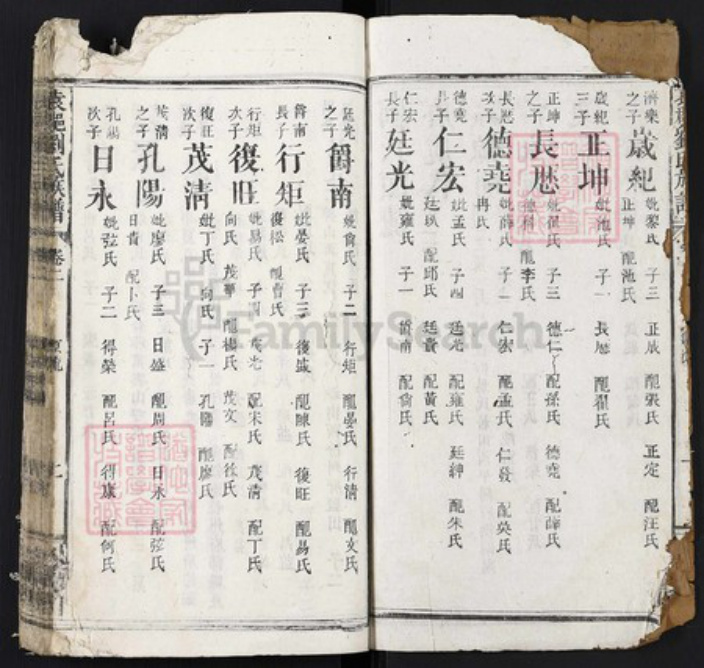 濟樂之子
歲紀
妣黎氏 子三 正辰 配張氏 正定 配汪氏
正坤 配池氏
歲紀三子
正坤
妣池氏 子一 長懋 配翟氏
正坤之子
長懋
妣翟氏 子三 德仁 配孫氏 德堯 配薛氏
配李氏
長懋次子
德堯
妣薛氏 子一 仁宏 配孟氏 仁發 配吳氏
冉氏
德堯長子
仁宏
妣孟氏 子四 廷光 配雍氏 廷紳 配朱氏
配邱氏 廷貴 配黃氏
仁宏長子
廷光
妣雍氏 子一 爵南 配喬氏
廷光之子
爵南
妣喬氏 子二 行矩 配晏氏 行清 配文氏
爵南長子
行矩
妣晏氏 子三 復盛 配陳氏 復旺 配易氏
復松 配曹氏
行矩次子
復旺
妣易氏 子四 茂光 配宋氏 茂清 配丁氏
向氏 茂華 配楊氏 茂文 配徐氏
復旺次子
茂清
妣丁氏 向氏 子一 孔陽 配廖氏
茂清之子
孔陽
妣廖氏 子三 日盛 配周氏 日永 配弦氏
日貴 配卜氏
孔陽次子
日永
妣弦氏 子二 得榮 配呂氏 得康 配何氏
袁邑劉氏族譜
卷二
FamilySearch